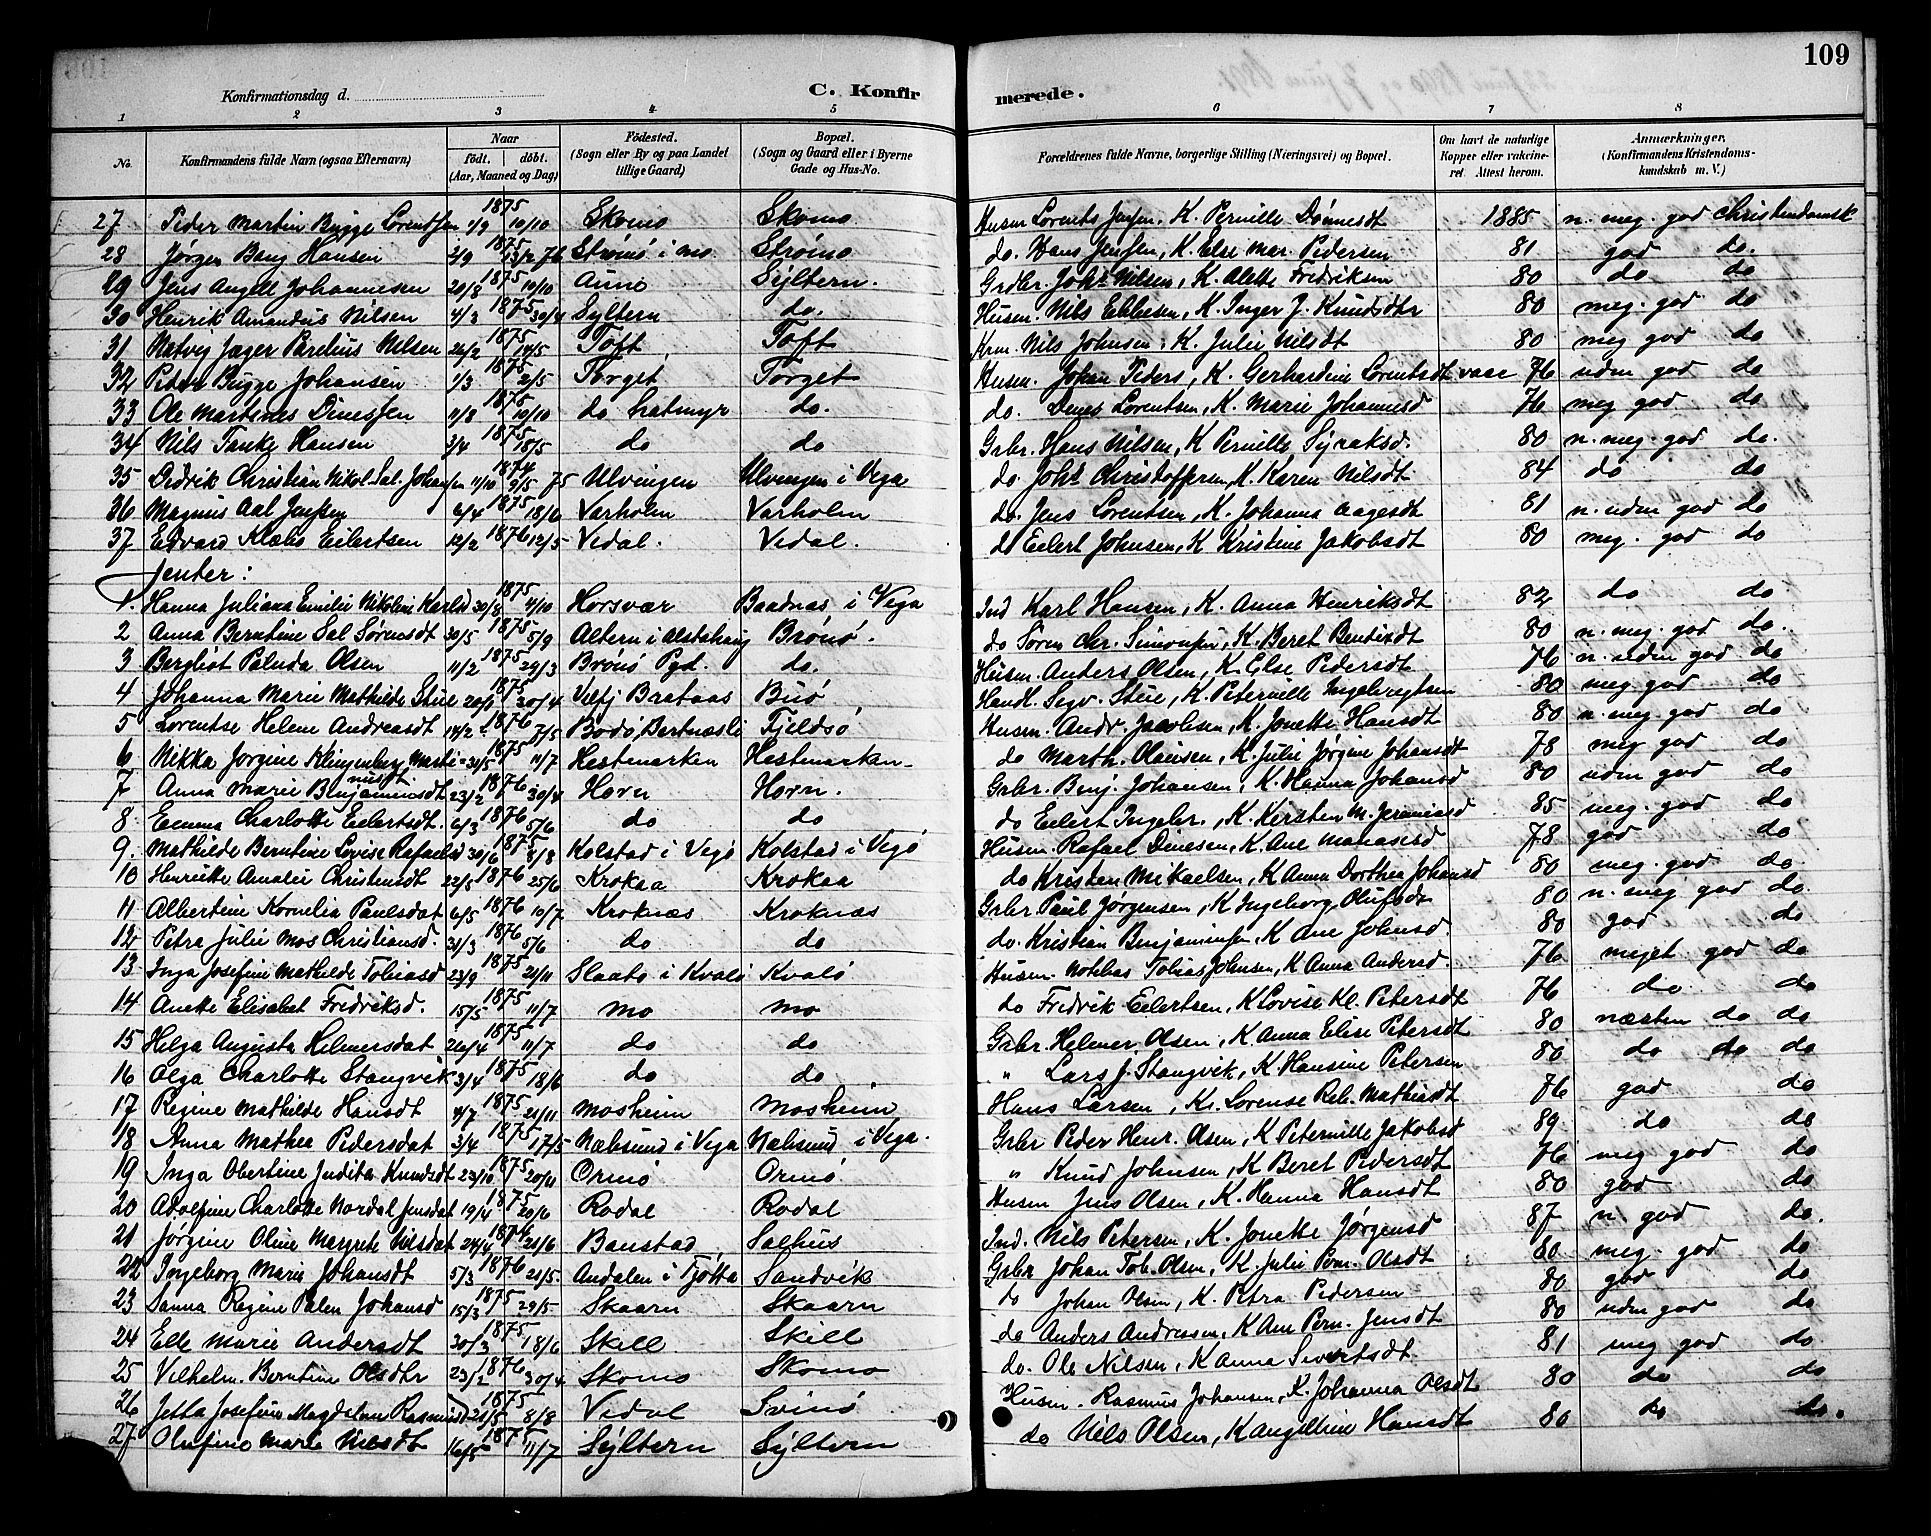 109
Konfirmationsdag d.
C. Konfirmerede.
1 2 3 4 5 6 7 8
No. Konfirmandens fulde Navn (ogsaa Efternavn) Naar födt. döbt. (Aar, Maaned og Dag) Födested. (Sogn eller By og paa Landet tillige Gaard) Bopæl. (Sogn og Gaard eller i Byerne Gade og Hus-No. Forældrenes fulde Navne, borgerlige Stilling (Næringsvei) og Bopæl. Om havt de naturlige Kopper eller vakcineret. Attest herom. Anmærkninger. (Konfirmandens Kristendomskundskab m. V.)
27 Peder Martin Bugge Lorentsen 1/9 1875 10/10 Skomo Skomo Husm Lorents Jensen, K. Pernille Dønnesdt 1885 n. meg. god Christendomsk
28 Jørgen Bang Hansen 2/9 1875 13/2 76 Strömö i mo Strömö do. Hans Jensen, K. Else Mar. Pedersen 81 god do.
29 Jens Angell Johannesen 20/8 1875 10/10 Aune Syltern. Grdbr. Johs Nilsen, K. Alette Fredriksen 80 do do
30 Henrik Amandus Nilsen 4/3 1875 30/4 Syltern do. Husm. Nils Ebbesen, K. Inger J. Knudsdtr 80 meg. god do
31 Natvig Jæger Parelius Nilsen 26/2 1875 14/5 Toft Toft Krm. Nils Johnsen, K. Julie Nilsdt 80 meg god do
32 Peder Bugge Johansen 1/3 1875 2/5 Torget Torget Husm. Johan Peders, K. Gerhardine Lorentsdt vacc 76 udm god do
33 Ole Martines Dinessen 11/8 1875 10/10 do hatmyr do. do. Dines Lorentsen, K. Marie Johannesd 76 meg god do
34 Nils Tanke Hansen 3/4 1875 18/5 do do Grbr. Hans Nilsen, K Pernille Syraksd. 80 n. meg. god do.
35 Didrik Christian Nikol. Sal. Johansen 11/10 1874 9/5 75 Ulvingen Ulvingen i Vega do Johs Christoffersen, K. Karen Nilsdt 84 do do
36 Magnus Aal Jensen 6/4 1875 18/6 Varholm Varholm do. Jens Lorentsen, K. Johanna Aagesdt 81 n. udm god do
37 Edvard Klæbo Eilertsen 12/2 1876 12/5 Vedal. Vedal. do Eilert Johnsen, K Kristine Jakobsdt 80 meg. god do
Jenter:
1. Hanna Juliana Emilie Nikoline Karlsd 30/8 1875 4/10 Horsvær Baadnas i Vega Ind Karl Hansen, K. Anna Henriksdt 82 do do
2 Anna Berntine Sal Sørensdt 30/5 1875 5/9 Altern i Alstahaug Brönö. do Sören Chr. Simonsen, K. Beret Bentsdt 80 n. meg. god do.
3 Bergliot Paluda Olsen 11/2 1875 29/3 Brönö Pgd. do. Husm. Anders Olsen, K. Else Pedersdt 76 n. udm god do
4 Johanna Marie Mathilde Stue 20/1 1875 30/4 Velfj Brataas Buö Handl. Segv. Stue, K. Peternille Ingebregtsen 80 meg god do
5 Lorentse Helene Andreasdt 14/2 1876 7/5 Bodö, Bertnæsli Fjeldsö Husm. Andr. Jacobsen, K. Jonette Hansdt 80 n. meg god do
6 Nikka Jorgine Klingenberg Martinusdt 31/5 1875 11/7 Hestmarken Hestmarken do Marth. Olausen, K. Julie Jørgine Johansdt 78 meg god do
7 Anna Marie Benjaminsdt 23/2 1876 30/4 Horn Horn. Grbr. Benj. Johansen, K. Hanna Johansd 80 udm god do
8 Emma Charlotte Eilertsdt. 6/3 1876 5/6 do do do Eilert Ingebr., K. Kirsten M. Jeremiasd 85 meg. god do
9. Mathilde Berntine Lovise Rafaelsd 30/6 1875 8/8 Kolstad i Vegö Kolstad i Vegö Husm. Rafael Dinesen, K. Ane Manassesd 78 god do
10 Henriette Amalie Christensdt 22/5 1876 25/6 Krokaa Krokaa do Kristen Mikaelsen, K Anna Dorthea Johansd 80 meg. god do.
11 Albertine Kornelia Paulsdat 6/5 1876 10/7 Kroknæs Kroknæs Grbr Paul Jørgensen, K Ingeborg Olufsdr 80 n. meg god do.
12 Petra Julie Mos Christiansd. 31/3 1876 5/6 do do do. Kristian Benjaminsen, K Ane Johnsd. 80 god do
13. Inga Josefine Mathilde Tobiasd 23/9 1875 21/11 Slaato i Kvalö Kvalö Husm. Tobias Johnsen, K Anna Andersd. 76 meget god do
14 Anette Elisabet Fredriksd. 15/5 1875 11/7 mo mo do Fredrik Eilertsen, K Lovise Kl. Petersdt 76 do do
15 Helga Augusta Helmersdat 26/4 1875 11/7 do do Grbr. Helmer Olsen, K Anna Elise Petersdt 80 næsten do do
16 Olga Charlotte Stangvik 3/4 1875 18/6 do do " Lars J. Stangvik, K. Hansine Petersen 80 do do do
17 Regine Mathilde Hansdt 4/7 1875 21/11 Mosheim Mosheim Hans Larsen, K. Lorense Reb. Mathiasdt 76 god do
18 Anna Mathea Pedersdat 3/4 1875 17/5 Næbsund i Vega Næbsund i Vega. Grbr Peder Henr. Olsen, K Peternille Jakobsd 89 do do
19 Inga Obertine Judita Knudsdt 23/10 1875 20/11 Ormö Ormö " Knud Johnsen, K Beret Pedersdt 76 meg god do
20 Adolfine Charlotte Nordal Jensdat 19/4 1875 20/6 Rodal Rodal Husm Jens Olsen, K. Hanna Hansdt 80 god do
21 Jørgine Oline Margrete Nilsdat 24/4 1876 21/6 Banstad Salhus Ind. Nils Petersen, K. Jonette Jørgensd 87 n god do.
22 Ingeborg Marie Johansdt 5/3 1876 21/5 Andalen i Tjötta Sandvik Grbr Johan Tob. Olsen, K. Julie Pern. Olsdt 80 meg. god do
23 Sanna Regine Palen Johansd 15/3 1875 29/5 Skaarn Skaarn do Johan Olsen, K. Petra Pedersen 80 god do
24 Elle Marie Andersdt 30/3 1875 18/6 Skill Skill do Anders Andreasen, K Ane Pern. Jensdt 80 udm god do
25 Vilhelm. Berntine Olsdtr 23/2 1876 30/4 Skomo Skomo do. Ole Nilsen, K Anna Sivertsdt 81 meg god do
26 Jetta Josefine Magdalena Rasmusd 21/5 1875 8/8 Vedal Svinö Husm. Rasmus Johansen, K. Johanna Olsdt 80 do do
27 Olufine Marie Nilsdt 16/5 1875 11/7 Syltern Syltern do Nils Olsen, K Angelline Hansdt 80 do do.